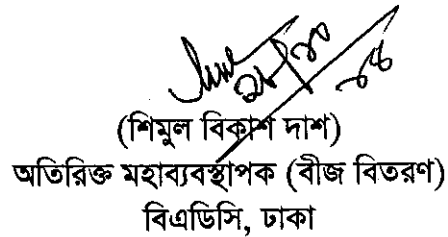 (শিমুল বিকাশ দাশ)
অতিরিক্ত মহাব্যবস্থাপক (বীজ বিতরণ)
বিএডিসি, ঢাকা